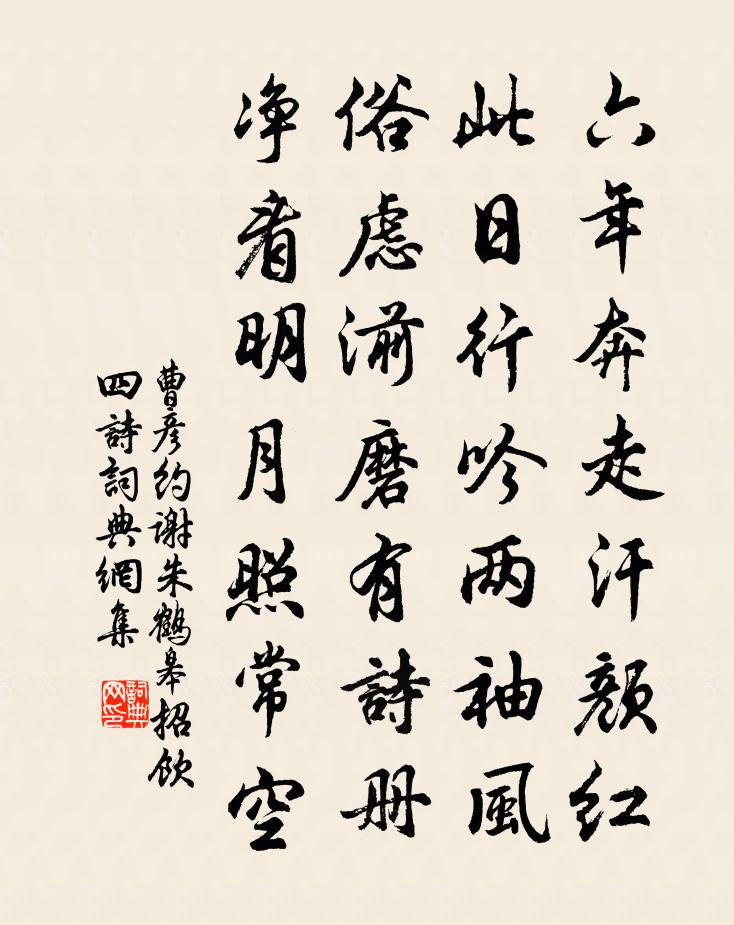 六年奔走汗颜红
此日行吟两袖風
俗慮湔磨有詩册
净看明月照常空
曹彦约谢朱鶴皋招饮
四詩詞典網集
詞典网印